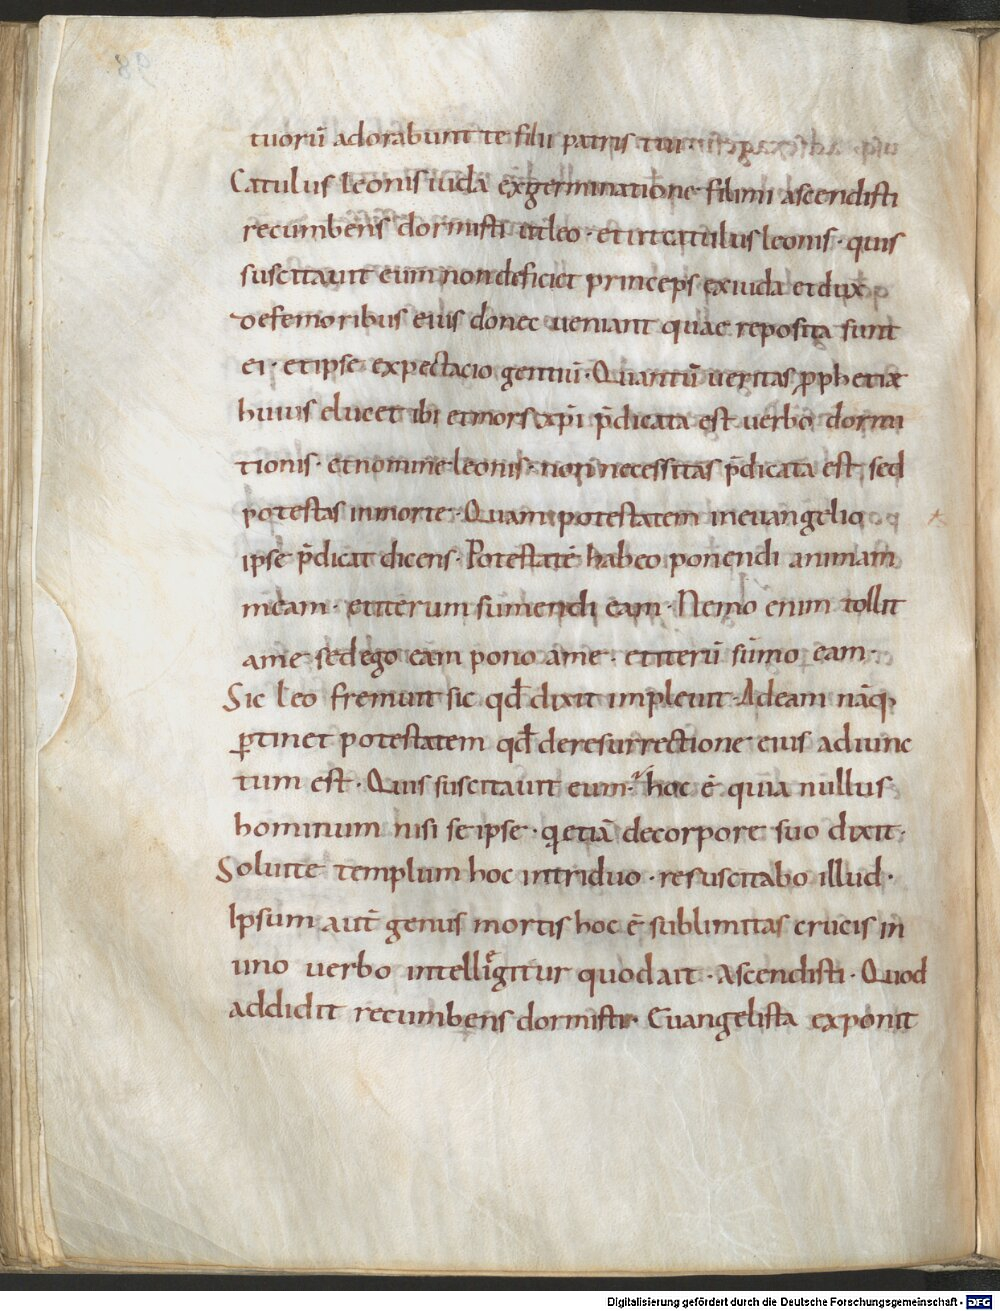 tuorū adorabunt te filii patris tui·
Catulus leonis iuda ex germinatione filimi ascendisti
recumbens dormisti utleo · et ut catulus leonis · quis
suscitauit eum non deficiet princeps ex iuda et dux
defemoribus eius donec ueniant quae reposita sunt
ei · et ipse expectacio gentiū · Quantū ueritas ꝓphetiæ
huius elucet ibi et mors xp̄i p̄dicata est uerbo dormi
tionis · et nomine leonis · non necessitas p̄dicata est sed
potestas in morte · Quam potestatem in euangelio
ipse p̄dicat dicens · Potestatē habeo ponendi animam
meam · et iterum sumendi eam · Nemo enim tollit
ame sed ego eam pono ame · et iterū sūmo eam ·
Sic leo fremuit sic qd̄ dixit impleuit · Adeam nāq;
ꝑtinet potestatem qd̄ de resurrectione eius adiunc
tum est · Quis suscitauit eum · hoc ē quia nullus
hominum nisi se ipse · q etiā decorpore suo dixit ·
Soluite templum hoc intriduo · resuscitabo illud ·
Ipsum aut̄ genus mortis hoc ē sublimitas crucis in
uno uerbo intelligitur quod ait · Ascendisti · Quod
addidit recumbens dormisti · Euangelista exponit
Digitalisierung gefördert durch die Deutsche Forschungsgemeinschaft - DFG